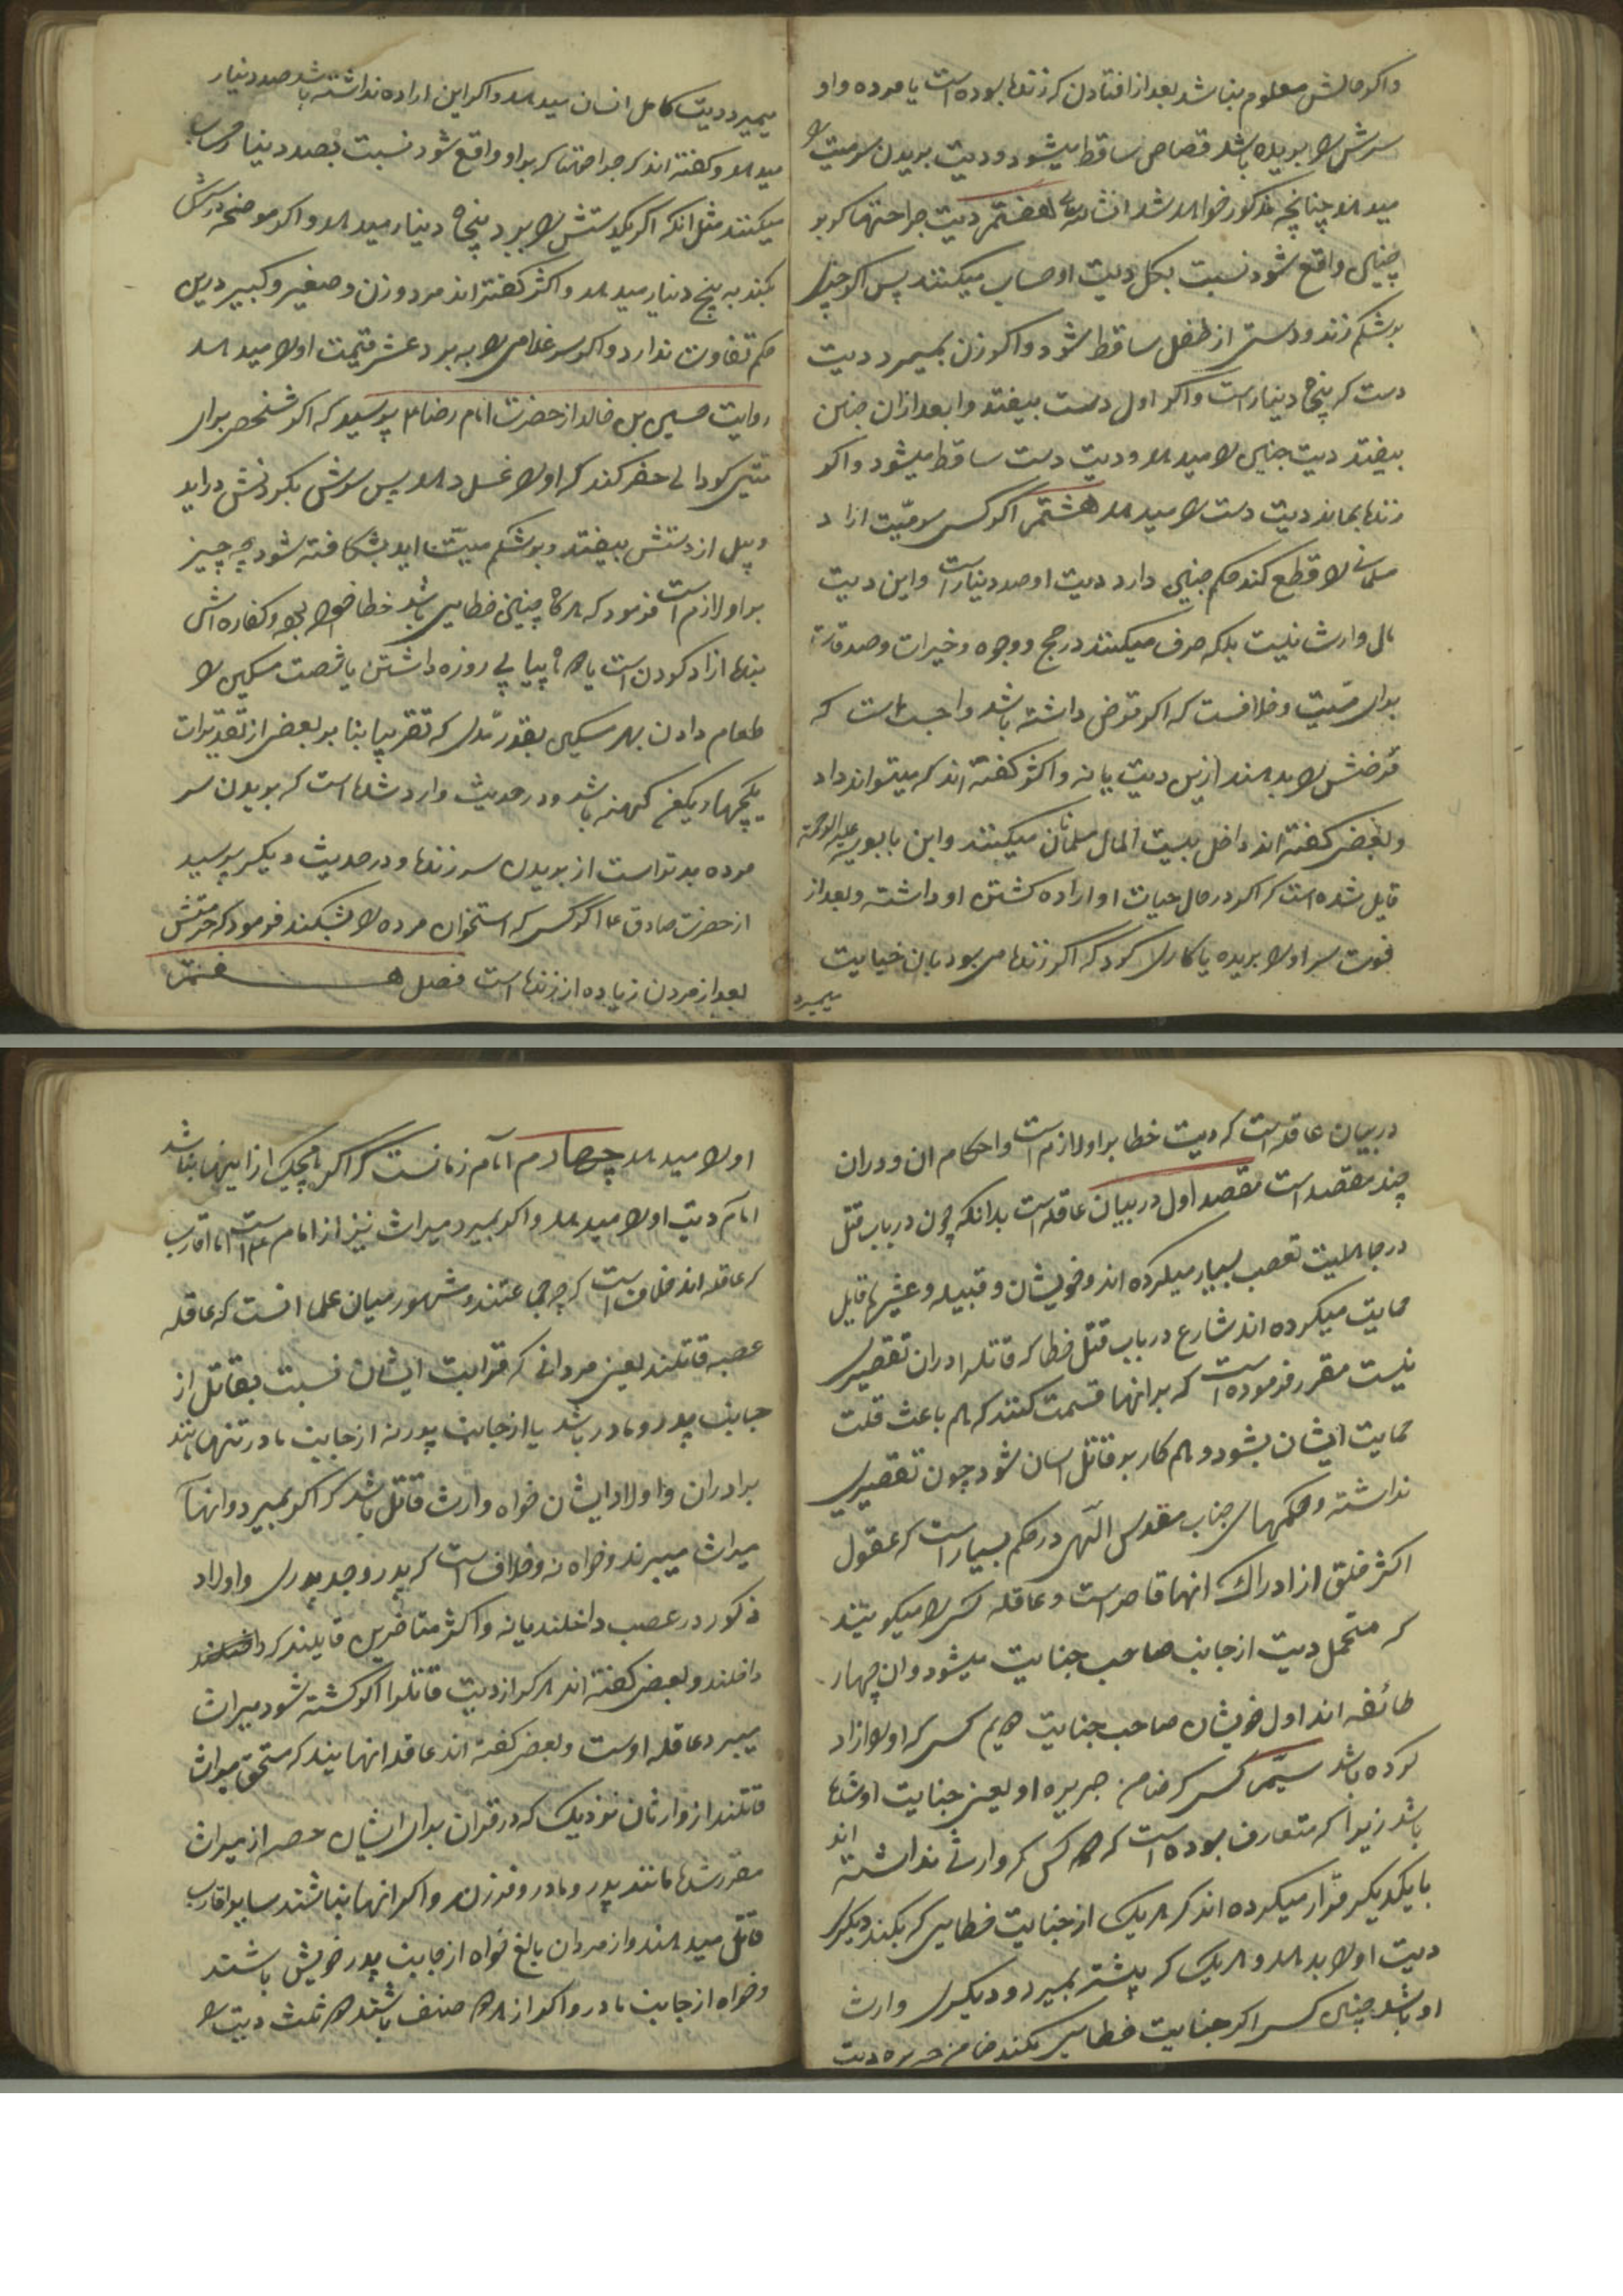 واکر حالش معلوم نباشد بعد از افتادن که زنده بوده است یا مرده و او
سرش را بریده باشد قصاص ساقط میشود و دیت بریدن سر میت را
میدهد چنانچه مذکور خواهد شد انشاءالله هفتم دیت جراحتها که بر
جنین واقع شود نسبت بکل دیت او حساب میکنند پس اکر چیزی
بر شکم زند و دستی از طفل ساقط شود و اکر زن بمیرد دیت
دست که پنجاه دینار است و اکر اول دست بیفتد و بعد از ان جنین
بیفتد دیت جنین را میدهد و دیت دست ساقط میشود و اکر
زنده بماند دیت دست را میدهد هشتم اکر کسی سر میّت ازاد
مسلمانی را قطع کند حکم جنین دارد دیت او صد دینار است و این دیت
مال وارث نیست بلکه صرف میکنند در حج و وجوه و خیرات و صدقات
برای میّت و خلافست که اکر قرض داشته باشد واجب است که
قرضش را بدهند ازین دیت یا نه و اکثر کفته اند که میتواند داد
و بعضی کفته اند داخل بیت المال مسلمانان میکنند و ابن بابویه علیه الرحمة
قایل شده است که اکر در حال حیات او اراده کشتن او داشته و بعد از
فوت سر او را بریده یا کاری کرد که اکر زنده می بود بان جنایت
میمرد
میمیرد دیت کامل انسان میدهد و اکر این اراده نداشته باشد صد دینار
میدهد و کفته اند که جراحتها که بر او واقع شود نسبت بصد دینار حساب
میکنند مثل انکه اکر یکدستش را ببرد پنجاه دینار میدهد و اکر موضحه در سرش
بکند به پنج دینار میدهد و اکثر کفته اند مرد و زن و صغیر و کبیر درین
حکم تفاوت ندارد و اکر سر غلامی را به برد عشر قیمت او را میدهد
روایت حسین بن خالد از حضرت امام رضا ع پرسید که اکر شخصی برای
میّتی کودالی حفر کند که او را غسل دهد پس سرش بکردنش دراید
و بیل از دستش بیفتد و بر شکم میّت اید بشکافته شود چه چیز
بر او لازم است فرمود که هرگاه چنین خطایی باشد خطا خواهد بود و کفاره اش
بنده ازاد کردن است یا دو ماه پیاپی روزه داشتن یا شصت مسکین را
طعام دادن بهر مسکین بقدر مدّی که تقریبا بنا بر بعضی از تقدیرات
یکچهار یکمن کهنه باشد و در حدیث وارد شده است که بریدن سر
مرده بدتر است از بریدن سر زنده و در حدیث دیکر پرسید
از حضرت صادق ع اکر کسی که استخوان مرده را بشکند فرمود که حرمتش
بعد از مردن زیاده از زنده است فصل هفتم
در بیان عاقله است که دیت خطا بر او لازم است و احکام ان و دران
چند مقصد است مقصد اول در بیان عاقله است بدانکه چون در باب قتل
در جاهلیت تعصب بسیار میکرده اند و خویشان و قبیله و عشیره قایل
حمایت میکرده اند شارع در باب قتل خطا که قاتل را دران تقصیری
نیست مقرر فرموده است که بر انها قسمت کنند که هم باعث قلت
حمایت ایشان بشود و هم کار بر قاتل اسان شود چون تقصیری
نداشته و حکمهای جناب مقدس الهی در حکم بسیار است که عقول
اکثر خلق از ادراک انها قاصر است و عاقله کسی را میکویند
که متحمل دیت از جانب صاحب جنایت میشود و ان چهار
طائفه اند اول خویشان صاحب جنایت دویم کسی که او را ازاد
کرده باشد سیّم کسی که ضامن جریره او یعنی جنایت او شده
باشد زیرا که متعارف بوده است که دو کس که وارثی نداشته اند
با یکدیکر قرار میکرده اند که هر یک از جنایت خطایی که بکند دیکری
دیت او را بدهد و هر یک که پیشتر بمیرد و دیکری وارث
او باشد چنین کسی اکر جنایت خطایی بکند ضامن جریره دیت
او را میدهد چهارم امام زمانست که اکر هیچیک از اینها نباشد
امام دیت او را میدهد و اکر بمیرد میراث نیز از امام است اما اقارب
که عاقله اند خلاف است که چه جماعتند مشهور میان علما انست که عاقله
عصبه قاتلند یعنی مردانی که قرابت ایشان نسبت بقاتل از
جانب پدر و مادر باشد یا از جانب پدر نه از جانب مادر تنها مانند
برادران و اولاد ایشان خواه وارث قاتل باشد که اکر بمیرد و انها
میراث میبرند و خواه نه و خلاف است که پدر و جد پدری و اولاد
ذکور در عصب داخلند یا نه و اکثر متاخرین قایلند که
داخلند و بعضی کفته اند هر که از دیت قاتل را اکر کشته شود میراث
میبرد عاقله اوست و بعضی کفته اند عاقله انهایند که مستحق میراث
قاتلند از وارثان نزدیک که در قران برای ایشان حصه از میراث
مقرر شده مانند پدر و مادر و فرزند و اکر انها نباشند سایر اقارب
قاتل میدهند و از مردان بالغ خواه از جانب پدر خویش باشند
و خواه از جانب مادر و اکر از هر دو صنف باشند دو ثلث دیت را